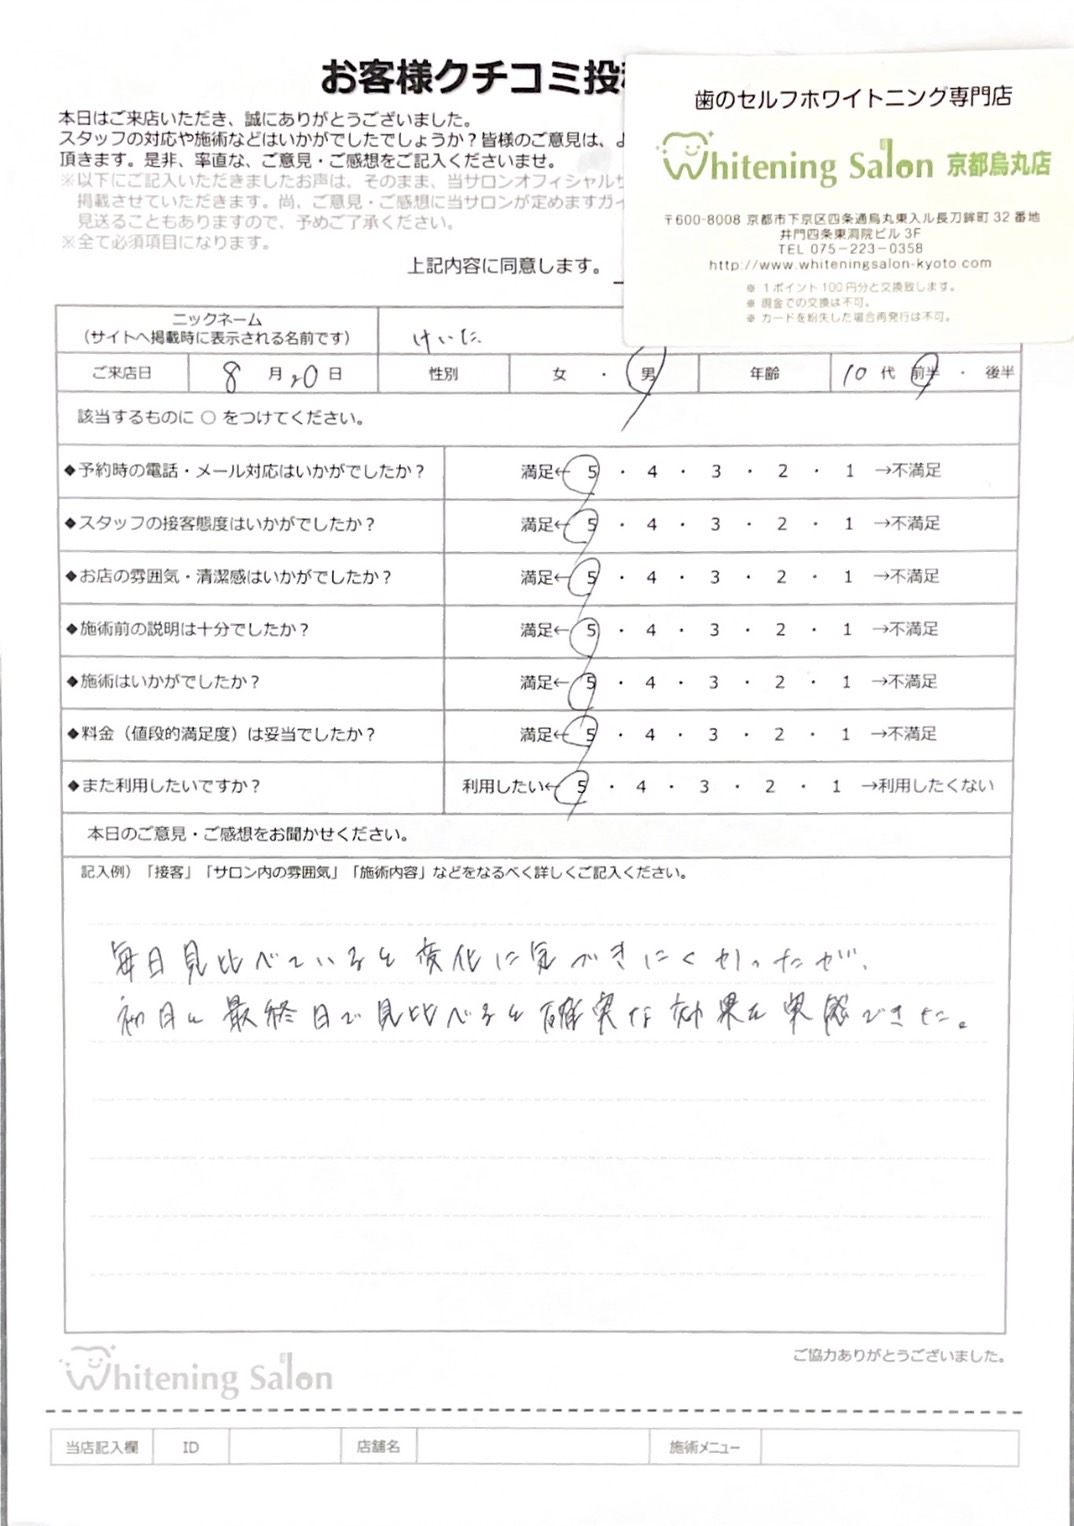 お客様クチコミ投
本日はご来店いただき、誠にありがとうございました。
スタッフの対応や施術などはいかがでしたでしょうか？皆様のご意見は、よ
頂きます。是非、率直な、ご意見・ご感想をご記入くださいませ。
※以下にご記入いただきましたお声は、そのまま、当サロンオフィシャルサ
掲載させていただきます。尚、ご意見・ご感想に当サロンが定めますガイ
見送ることもありますので、予めご了承ください。
※全て必須項目になります。
上記内容に同意します。
歯のセルフホワイトニング専門店
Whitening Salon 京都烏丸店
〒600-8008 京都市下京区四条通烏丸東入ル長刀鉾町 32 番地
井門四条東洞院ビル 3F
TEL 075-223-0358
http://www.whiteningsalon-kyoto.com
※ 1ポイント100円分と交換致します。
※ 現金での交換は不可。
※ カードを紛失した場合再発行は不可。
ニックネーム
（サイトへ掲載時に表示される名前です） けいた
ご来店日 8 月 20 日 性別 女 ・ 男 年齢 10 代 前半 ・ 後半
該当するものに ○ をつけてください。
◆予約時の電話・メール対応はいかがでしたか？ 満足← 5 ・ 4 ・ 3 ・ 2 ・ 1 →不満足
◆スタッフの接客態度はいかがでしたか？ 満足← 5 ・ 4 ・ 3 ・ 2 ・ 1 →不満足
◆お店の雰囲気・清潔感はいかがでしたか？ 満足← 5 ・ 4 ・ 3 ・ 2 ・ 1 →不満足
◆施術前の説明は十分でしたか？ 満足← 5 ・ 4 ・ 3 ・ 2 ・ 1 →不満足
◆施術はいかがでしたか？ 満足← 5 ・ 4 ・ 3 ・ 2 ・ 1 →不満足
◆料金（値段的満足度）は妥当でしたか？ 満足← 5 ・ 4 ・ 3 ・ 2 ・ 1 →不満足
◆また利用したいですか？ 利用したい← 5 ・ 4 ・ 3 ・ 2 ・ 1 →利用したくない
本日のご意見・ご感想をお聞かせください。
記入例）「接客」「サロン内の雰囲気」「施術内容」などをなるべく詳しくご記入ください。
毎日見比べていると変化に気づきにくかったが、
初日と最終日で見比べると確実な効果を実感できた。
Whitening Salon
ご協力ありがとうございました。
当店記入欄 ID 店舗名 施術メニュー